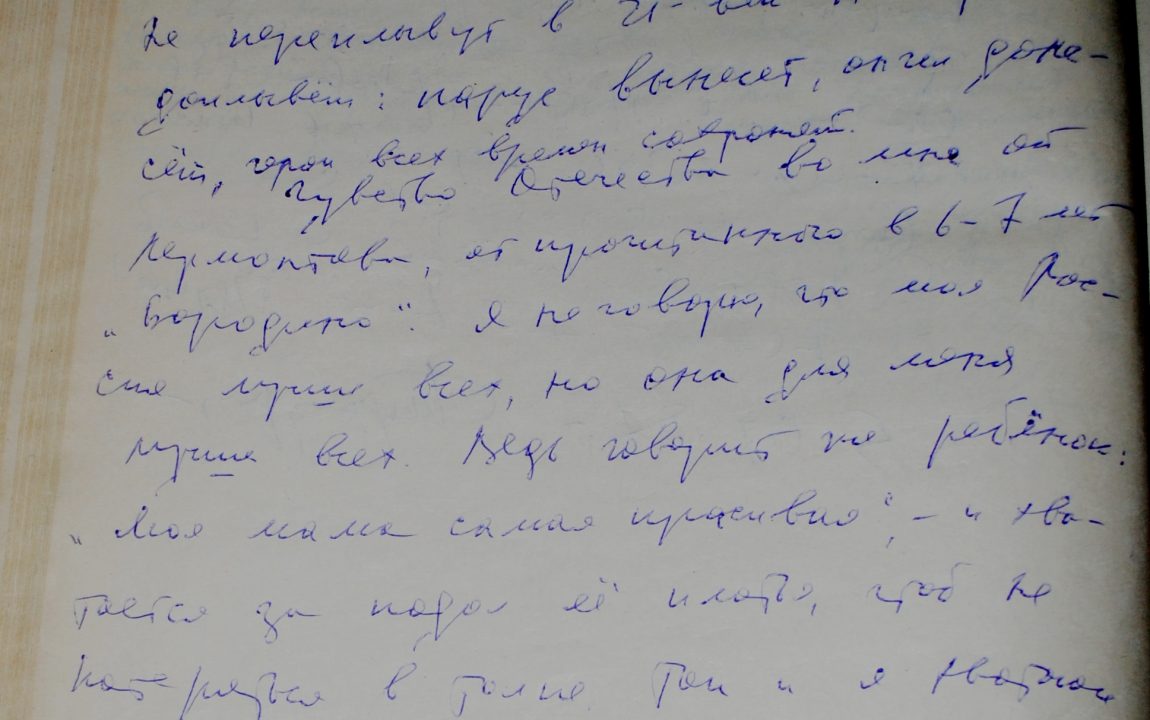 не переплывут в 21-век
доплывёт: парус вынесет, ангел доне-
сёт, герои всех времён сохранят.
Чувство Отечества во мне от
Лермонтова, от прочитанного в 6-7 лет
„Бородино“. Я не говорю, что моя Рос-
сия лучше всех, но она для меня
лучше всех. Ведь говорит же ребёнок:
„Моя мама самая красивая“, – и хва-
тается за подол её платья, чтоб не
потеряться в толпе. Так и я